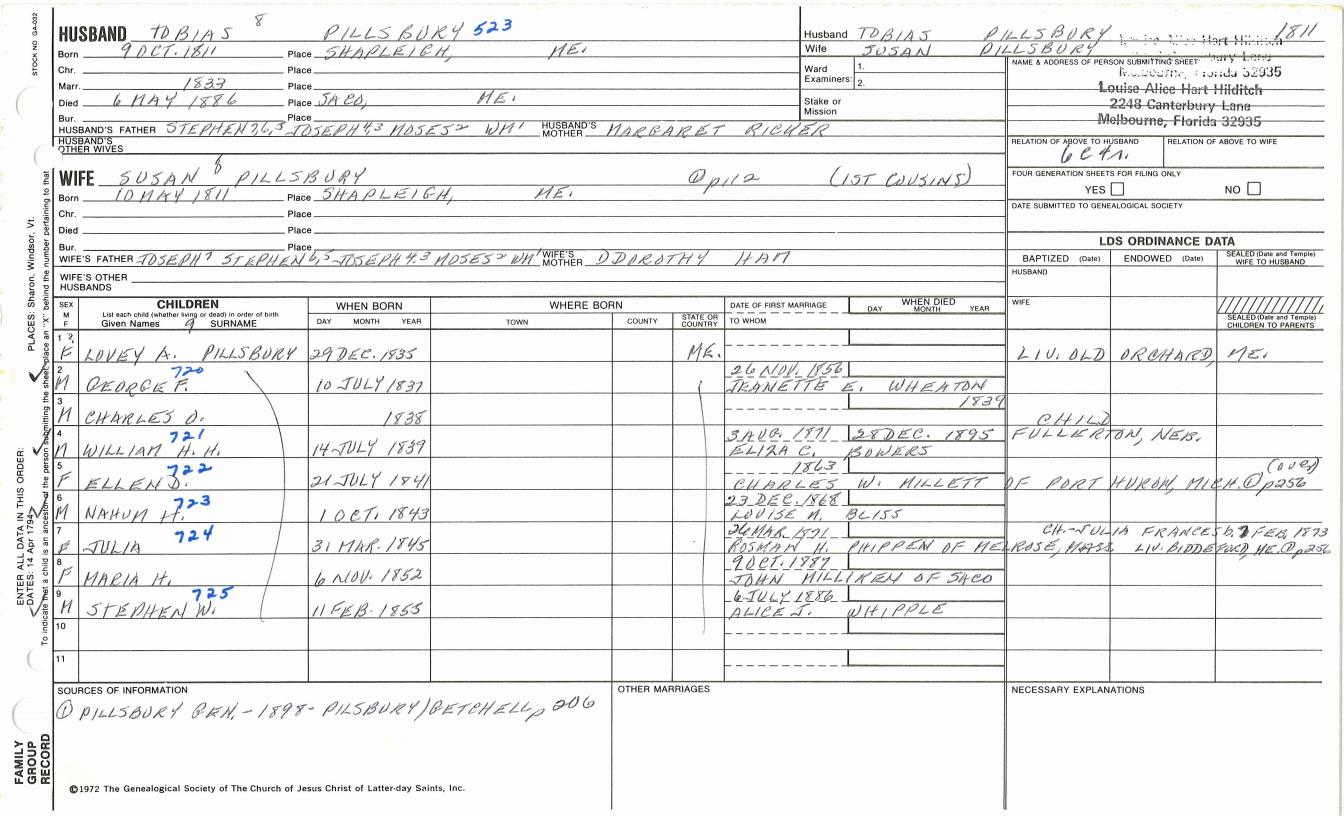 STOCK NO GA-032
HUSBAND TOBIAS 8 PILLSBURY 523
Born 9 OCT. 1811 Place SHAPLEIGH, ME.
Chr. Place
Marr. 1833 Place
Died 6 MAY 1886 Place SACO, ME.
Bur. Place
HUSBAND'S FATHER STEPHEN 7,6,5 JOSEPH 4,3 MOSES 2 WM 1 HUSBAND'S MOTHER MARGARET RICKER
HUSBAND'S OTHER WIVES
Husband TOBIAS PILLSBURY 1811
Wife SUSAN PILLSBURY
Ward Examiners: 1. 2.
Stake or Mission
NAME & ADDRESS OF PERSON SUBMITTING SHEET
Louise Alice Hart Hilditch
Melbourne, Florida 32935
Louise Alice Hart Hilditch
2248 Canterbury Lane
Melbourne, Florida 32935
RELATION OF ABOVE TO HUSBAND RELATION OF ABOVE TO WIFE
6C4r.
FOUR GENERATION SHEETS FOR FILING ONLY
YES NO
DATE SUBMITTED TO GENEALOGICAL SOCIETY
WIFE SUSAN 8 PILLSBURY ① p112 (1ST COUSINS)
Born 10 MAY 1811 Place SHAPLEIGH, ME.
Chr. Place
Died Place
Bur. Place
WIFE'S FATHER JOSEPH 7 STEPHEN 6,5 JOSEPH 4,3 MOSES 2 WM 1 WIFE'S MOTHER DOROTHY HAM
WIFE'S OTHER HUSBANDS
LDS ORDINANCE DATA
BAPTIZED (Date) ENDOWED (Date) SEALED (Date and Temple) WIFE TO HUSBAND
HUSBAND
WIFE
SEALED (Date and Temple) CHILDREN TO PARENTS
SEX M F
CHILDREN
List each child (whether living or dead) in order of birth
Given Names 9 SURNAME
WHEN BORN
DAY MONTH YEAR
WHERE BORN
TOWN COUNTY STATE OR COUNTRY
DATE OF FIRST MARRIAGE
TO WHOM
WHEN DIED
DAY MONTH YEAR
1 F LOVEY A. PILLSBURY 29 DEC. 1835 ME. LIV. OLD ORCHARD, ME.
2 720 26 NOV. 1856
M GEORGE F. 10 JULY 1837 JEANETTE E. WHEATON
3 1839
M CHARLES D. 1838 CHILD
4 721 3 AUG. 1871 28 DEC. 1895 FULLERTON, NEB.
M WILLIAM H. H. 14 JULY 1839 ELIZA C. BOWERS
5 722 1863 (over)
F ELLEN D. 21 JULY 1841 CHARLES W. MILLETT OF PORT HURON, MICH. ① p256
6 723 23 DEC. 1868
M NAHUM H. 1 OCT. 1843 LOUISE M. BLISS
7 724 26 MAR. 1891 CH-JULIA FRANCES b. 7 FEB. 1893
F JULIA 31 MAR. 1845 ROSMAN H. PHIPPEN OF MELROSE, MASS. LIV. BIDDEFORD, ME. ① p256
8 9 OCT. 1889
F MARIA H. 6 NOV. 1852 JOHN MILLIKEN OF SACO
9 725 6 JULY 1886
M STEPHEN W. 11 FEB. 1855 ALICE J. WHIPPLE
10
11
SOURCES OF INFORMATION OTHER MARRIAGES NECESSARY EXPLANATIONS
① PILLSBURY GEN. - 1898 - PILSBURY/GETCHELL p 206
©1972 The Genealogical Society of The Church of Jesus Christ of Latter-day Saints, Inc.
FAMILY GROUP RECORD
ENTER ALL DATA IN THIS ORDER:
DATES: 14 Apr 1794
PLACES: Sharon, Windsor, Vt.
To indicate that a child is an ancestor of the person submitting the sheet, place an "X" behind the number pertaining to that